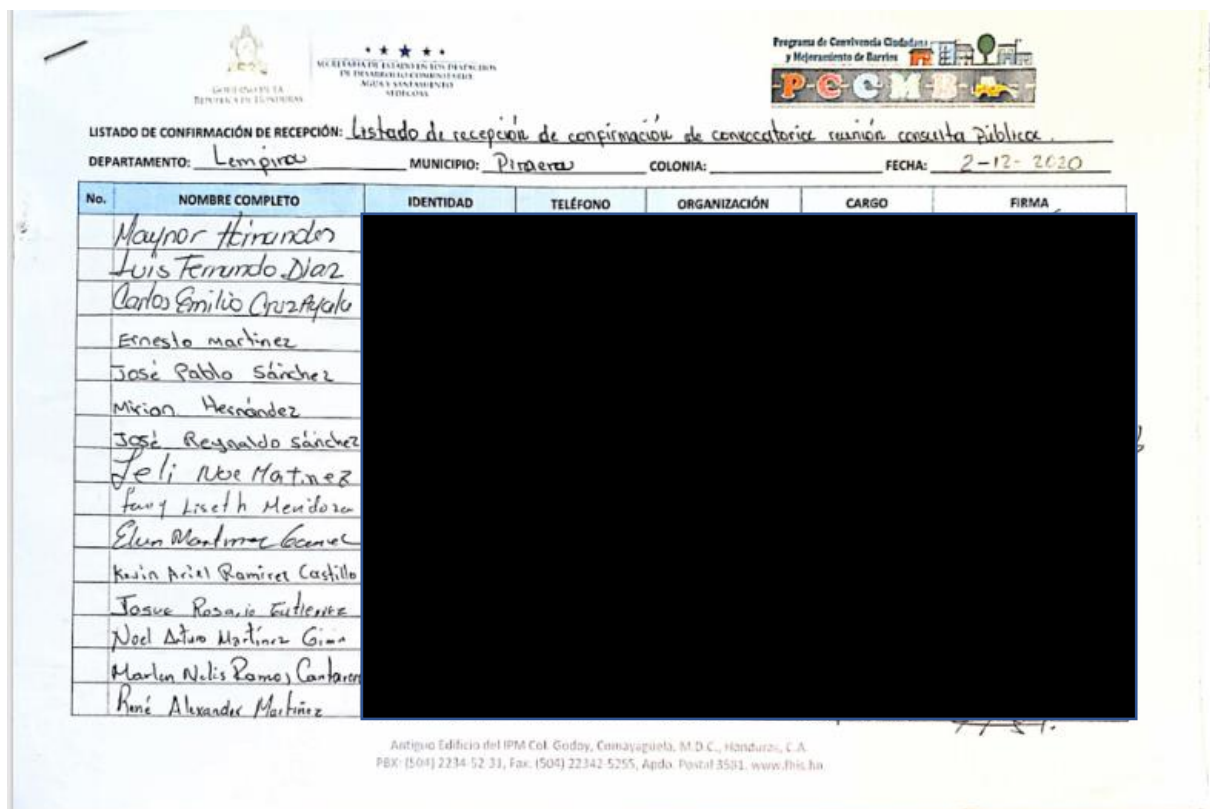 GOBIERNO DE LA
REPÚBLICA DE HONDURAS
SECRETARÍA DE ESTADO EN LOS DESPACHOS
DE DESARROLLO COMUNITARIO
AGUA Y SANEAMIENTO
SEDECOAS
Programa de Convivencia Ciudadana
y Mejoramiento de Barrios
P-C-C-M-B
LISTADO DE CONFIRMACIÓN DE RECEPCIÓN: Listado de recepción de confirmación de convocatoria reunión consulta Pública.
DEPARTAMENTO: Lempira MUNICIPIO: Piraera COLONIA: FECHA: 2-12-2020
No. NOMBRE COMPLETO IDENTIDAD TELÉFONO ORGANIZACIÓN CARGO FIRMA
Maynor
Luis Fernando Diaz
Carlos Emilio Cruz Ayala
Ernesto martinez
José Pablo Sánchez
Mirian Hernández
José Reynaldo sánchez
Noe
Liseth Mendoza
Kevin Ariel Ramirez Castillo
Josue Rosario
Noel Arturo Martínez
Ramos
René Alexander Martínez
Antiguo Edificio del IPM Col. Godoy, Comayagüela, M.D.C., Honduras, C.A.
PBX: (504) 2234-52-31, Fax: (504) 22342-5255, Apdo. Postal 3581, www.fhis.hn